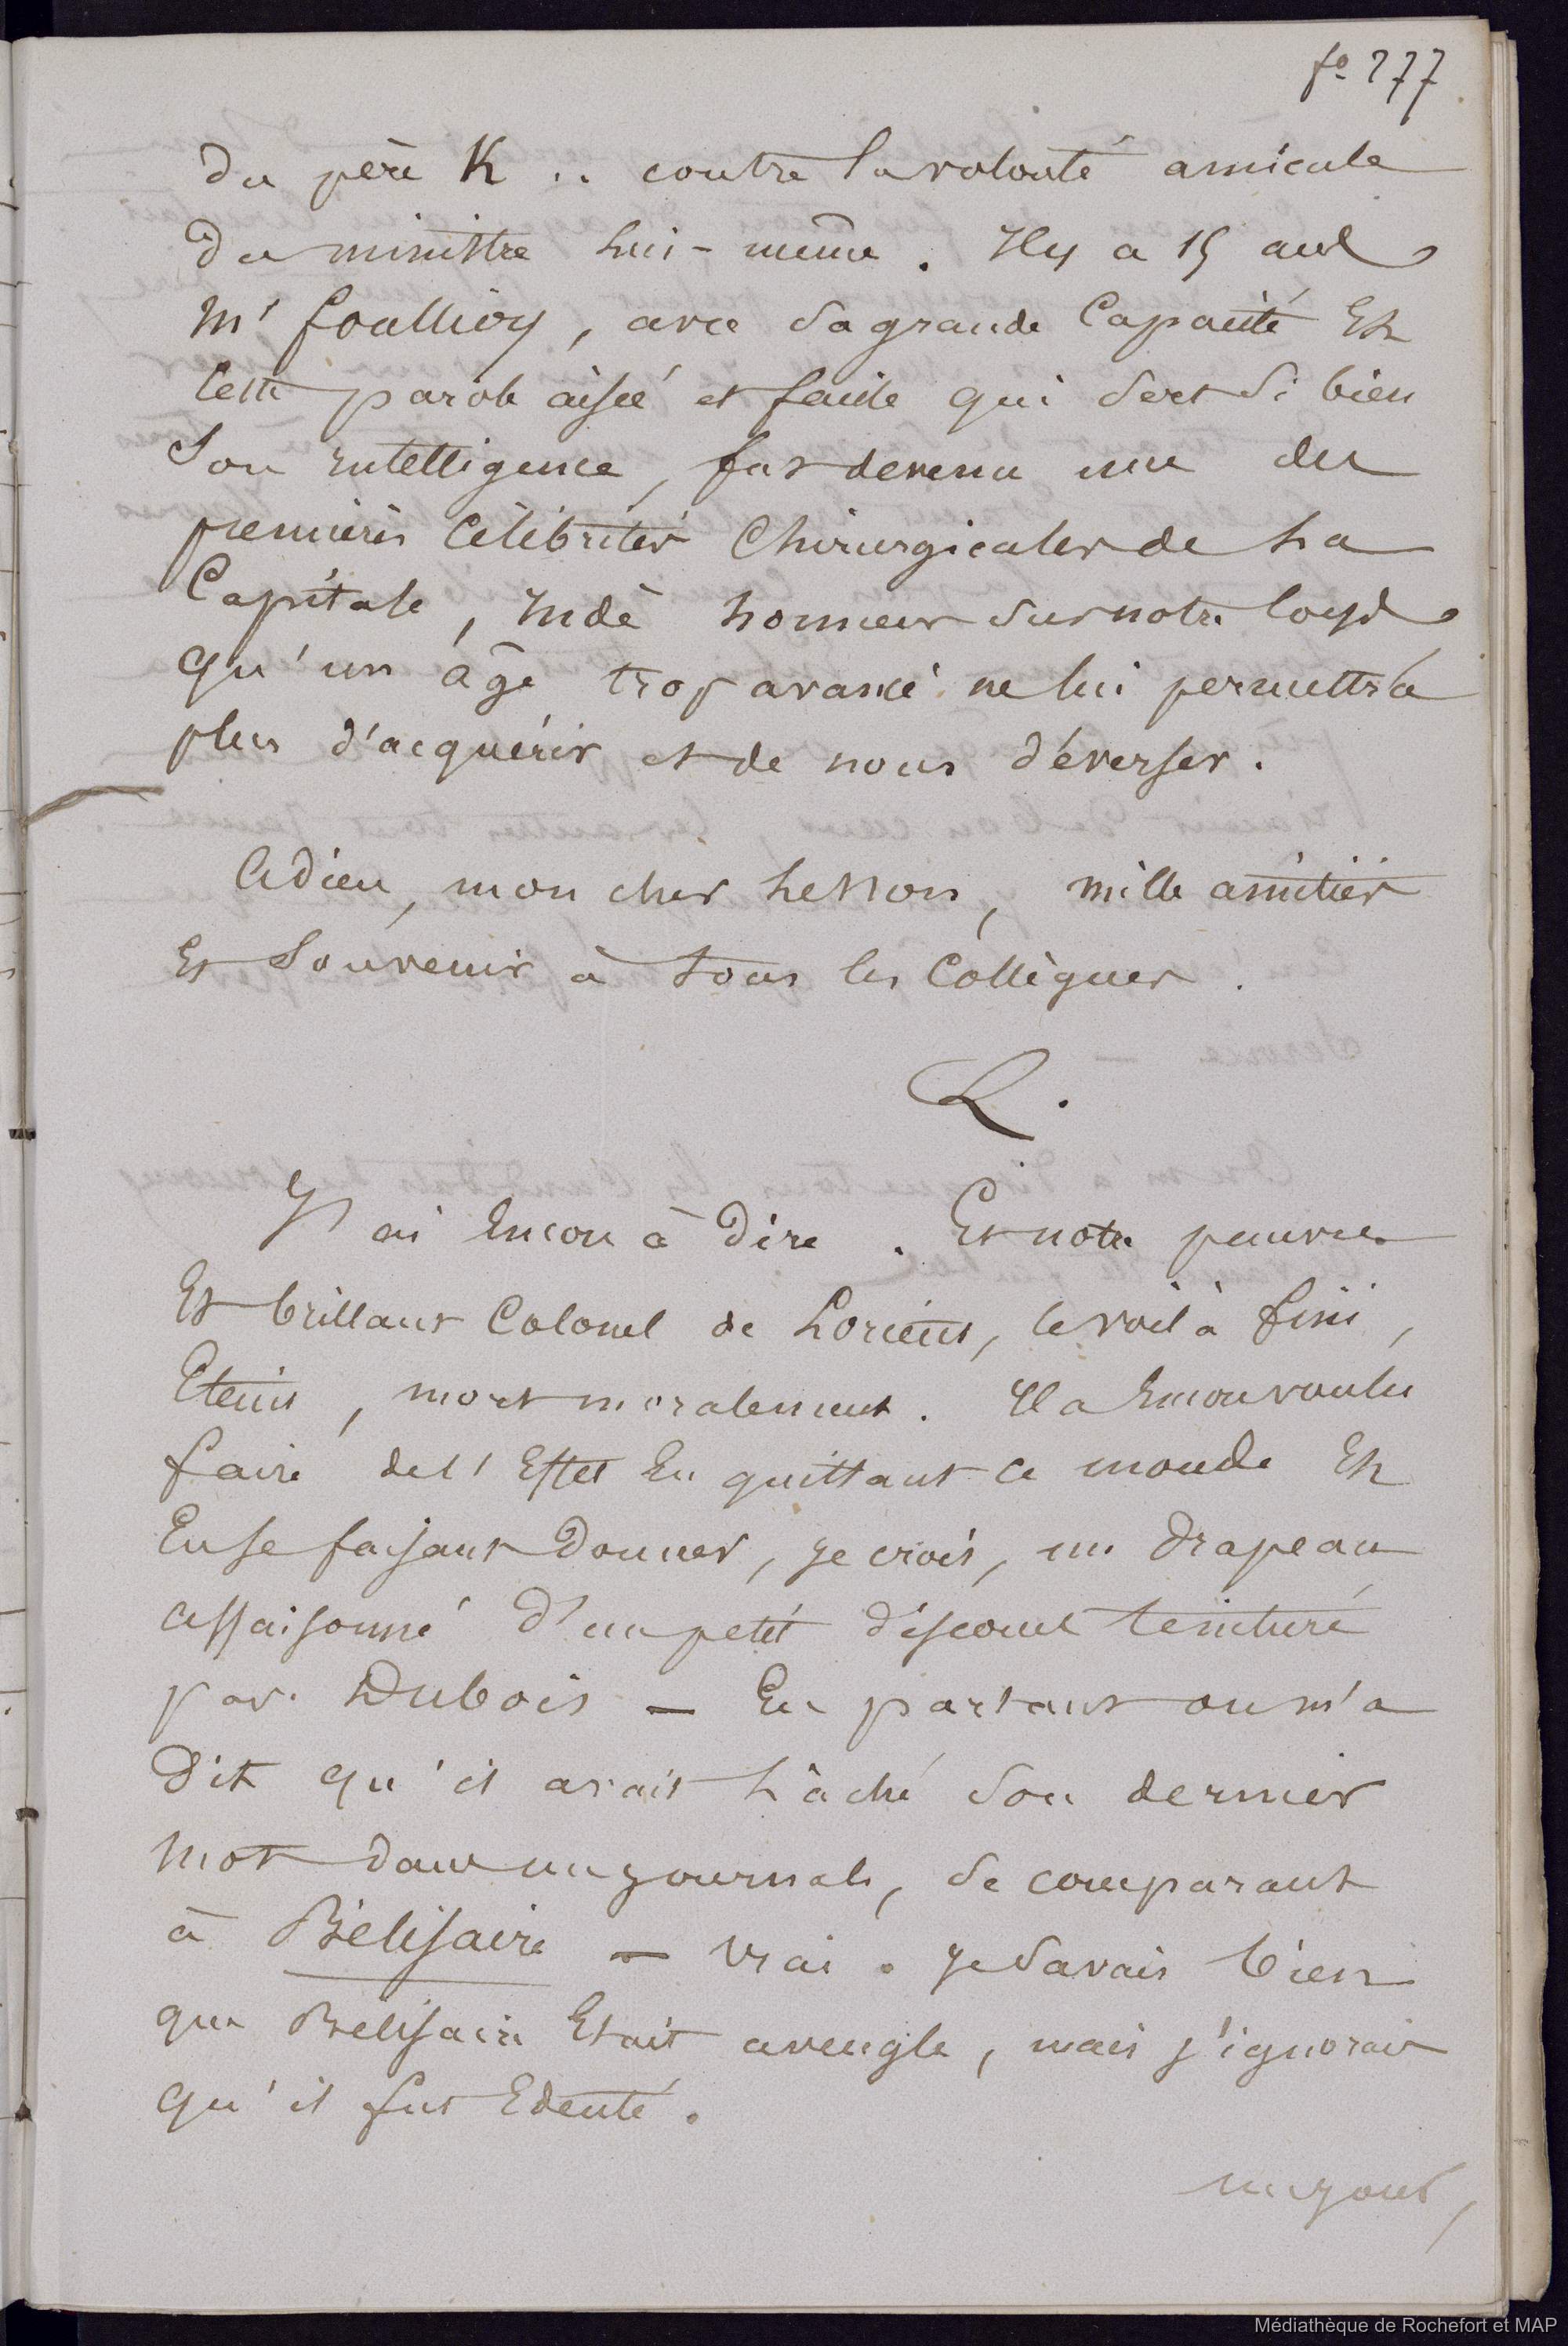 fo 277
du père K ... contre la volonté amicale
du ministre lui-même. Il y a 15 ans
Mr Foullioy, avec sa grande capacité et
cette parole aisée et facile qui sert si bien
son intelligence, fut devenu une des
premières célébrités chirurgicales de la
Capitale, honneur sur notre corps
qu'un âge trop avancé ne lui permettra
plus d'acquérir et de nous déverser.
Adieu, mon cher Lesson, mille amitiés
et souvenir à tous les Collègues.
L.
J'ai encore à dire. Et notre pauvre
et brillant Colonel de Lorient, le voilà fini,
Eteint, mort moralement. Il a encore voulu
faire de l'Effet en quittant ce monde et
en se faisant donner, je crois, un drapeau
assaisonné d'un petit discours teinturé
par Dubois — En partant on m'a
dit qu'il avait lâché son dernier
mot dans un journal, se comparant
à Bélisaire — vrai. je savais bien
que Bélisaire Etait aveugle, mais j'ignorais
qu'il fut Edenté.
un jour,
Médiathèque de Rochefort et MAP